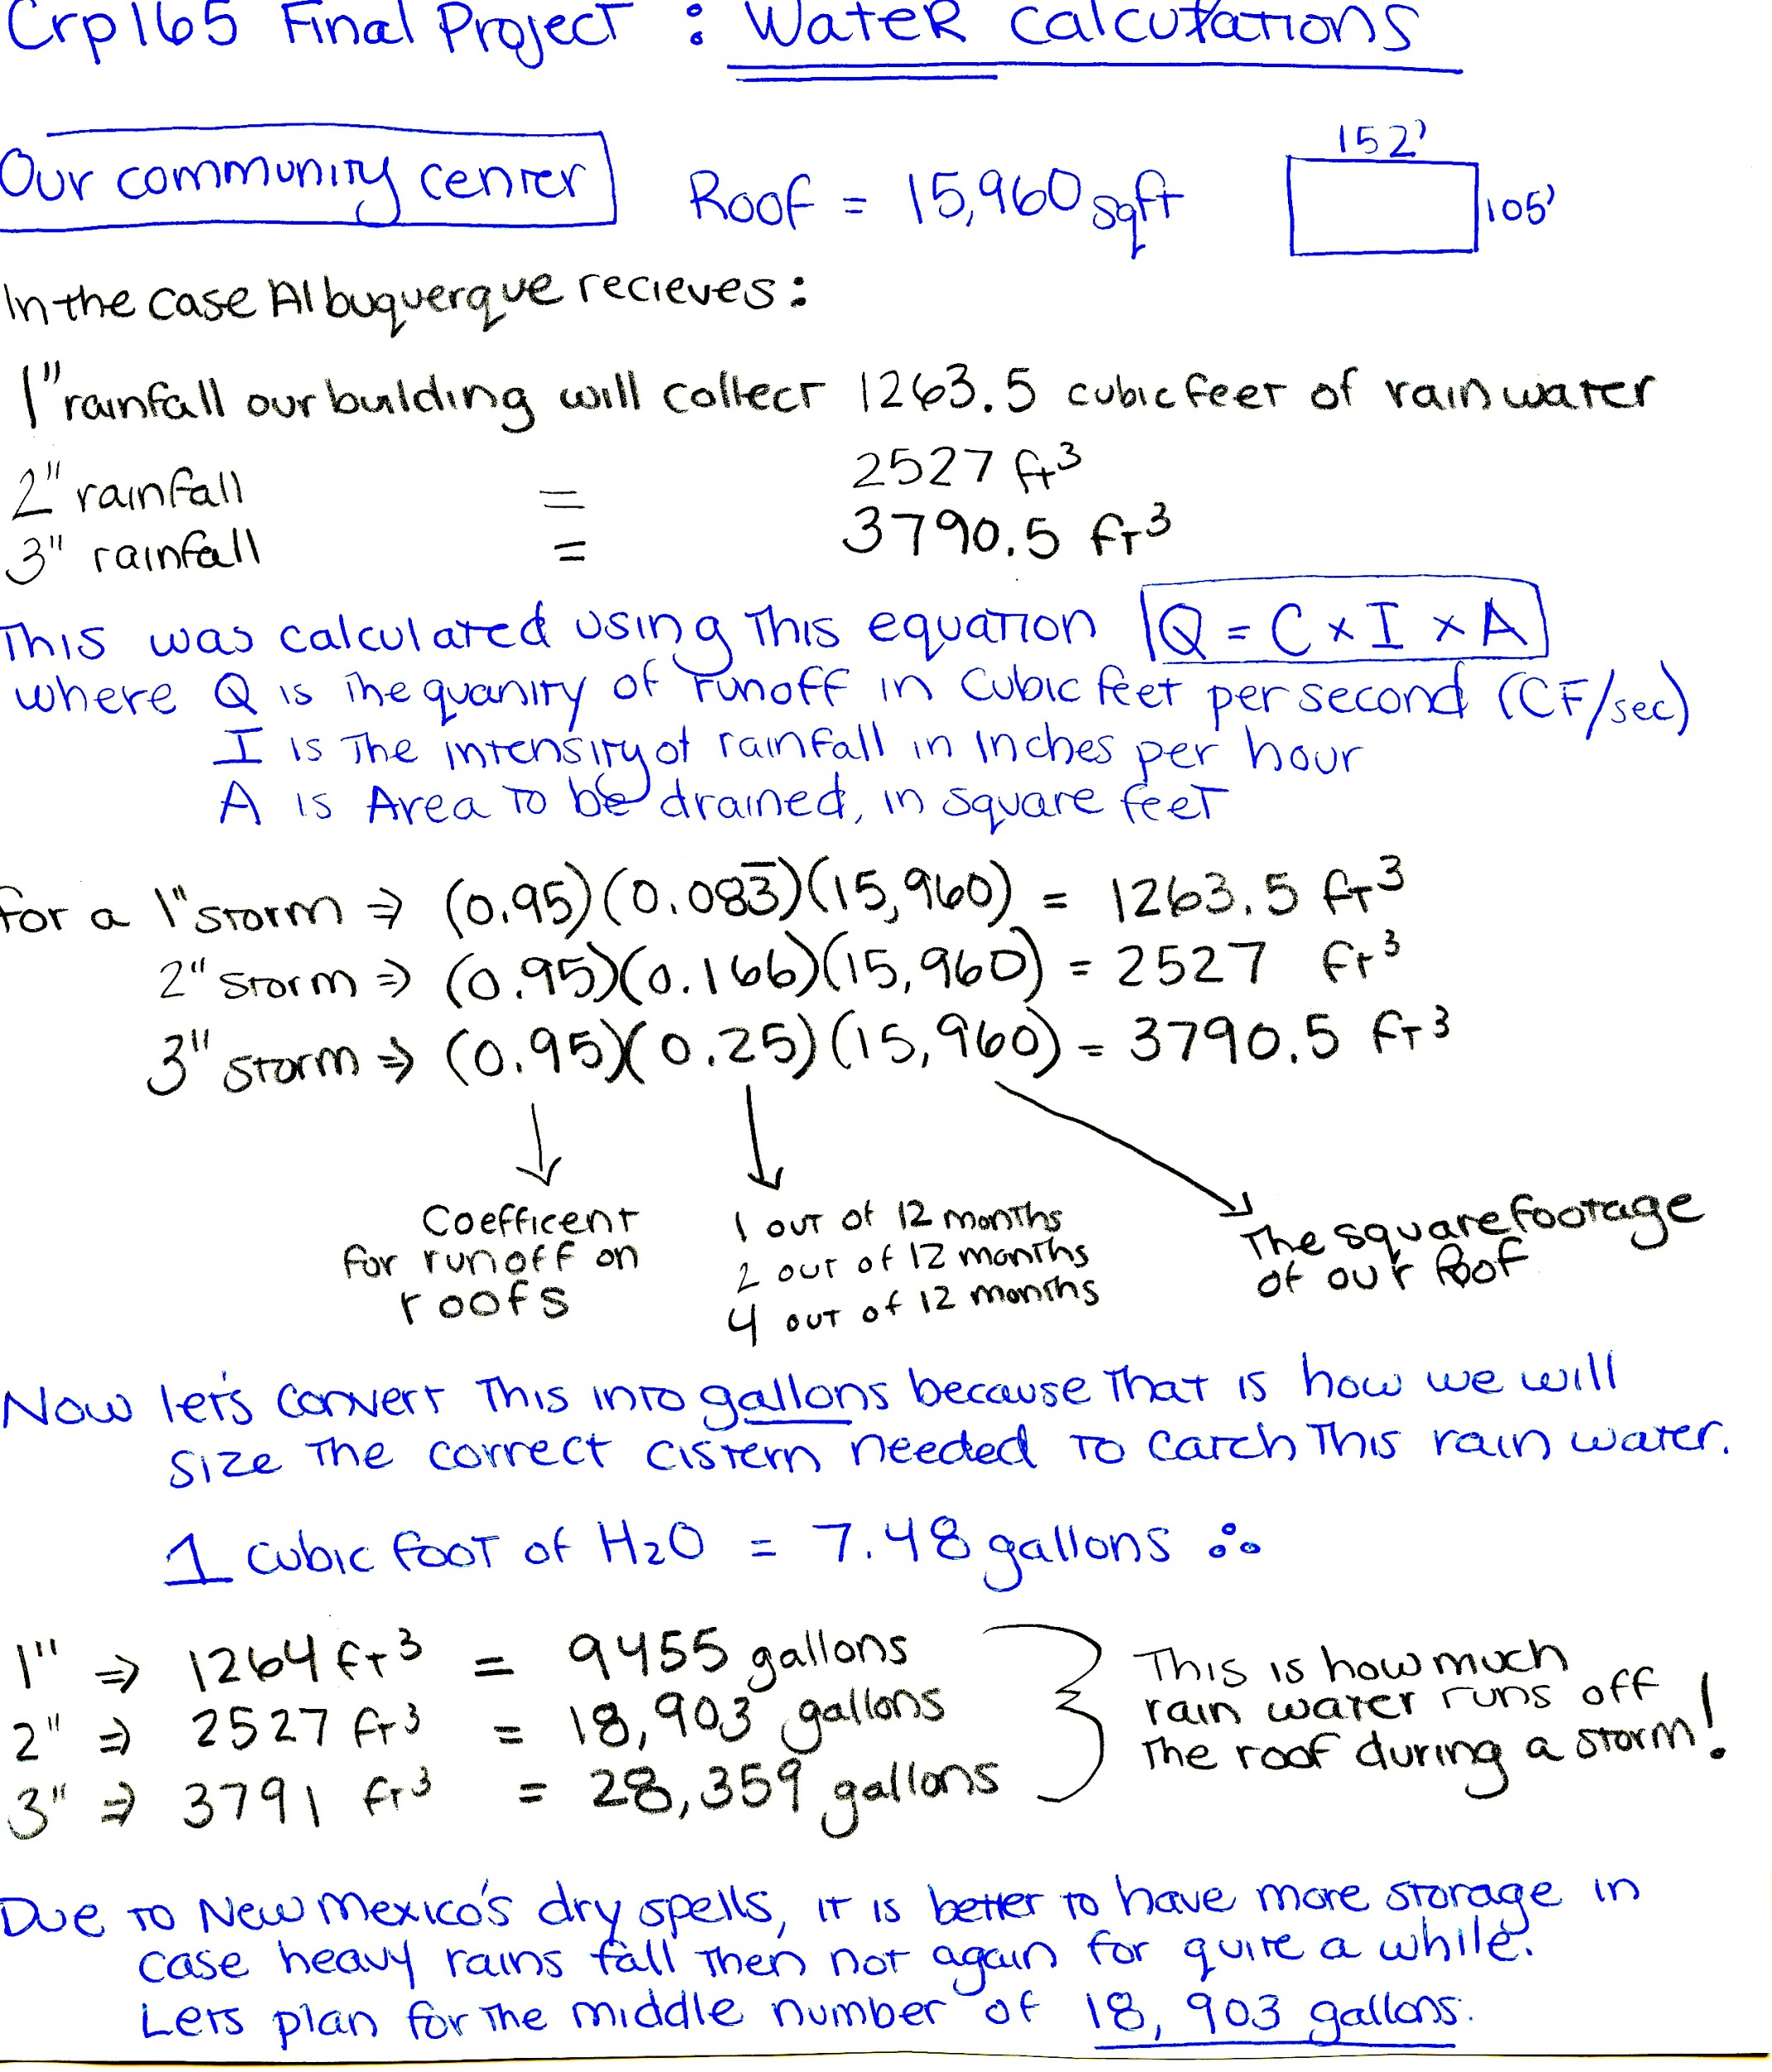 Crp165 Final Project : Water Calculations
Our community center Roof = 15,960 sqft 152' 105'
In the case Albuquerque recieves:
1" rainfall our building will collect 1263.5 cubic feet of rain water
2" rainfall = 2527 ft³
3" rainfall = 3790.5 ft³
This was calculated using this equation Q = C x I x A
where Q is the quanity of runoff in Cubic feet per second (CF/sec)
I is the intensity of rainfall in inches per hour
A is Area to be drained, in square feet
for a 1" storm ⇒ (0.95)(0.083̅)(15,960) = 1263.5 ft³
2" storm ⇒ (0.95)(0.166)(15,960) = 2527 ft³
3" storm ⇒ (0.95)(0.25)(15,960) = 3790.5 ft³
Coefficent 1 out of 12 months The square footage
for runoff on 2 out of 12 months of our Roof
roofs 4 out of 12 months
Now let's convert this into gallons because that is how we will
size the correct cistern needed to catch this rain water.
1 cubic foot of H2O = 7.48 gallons ∴
1" ⇒ 1264 ft³ = 9455 gallons This is how much
2" ⇒ 2527 ft³ = 18,903 gallons rain water runs off
3" ⇒ 3791 ft³ = 28,359 gallons the roof during a storm!
Due to New Mexico's dry spells, it is better to have more storage in
case heavy rains fall then not again for quite a while.
Lets plan for the middle number of 18,903 gallons.